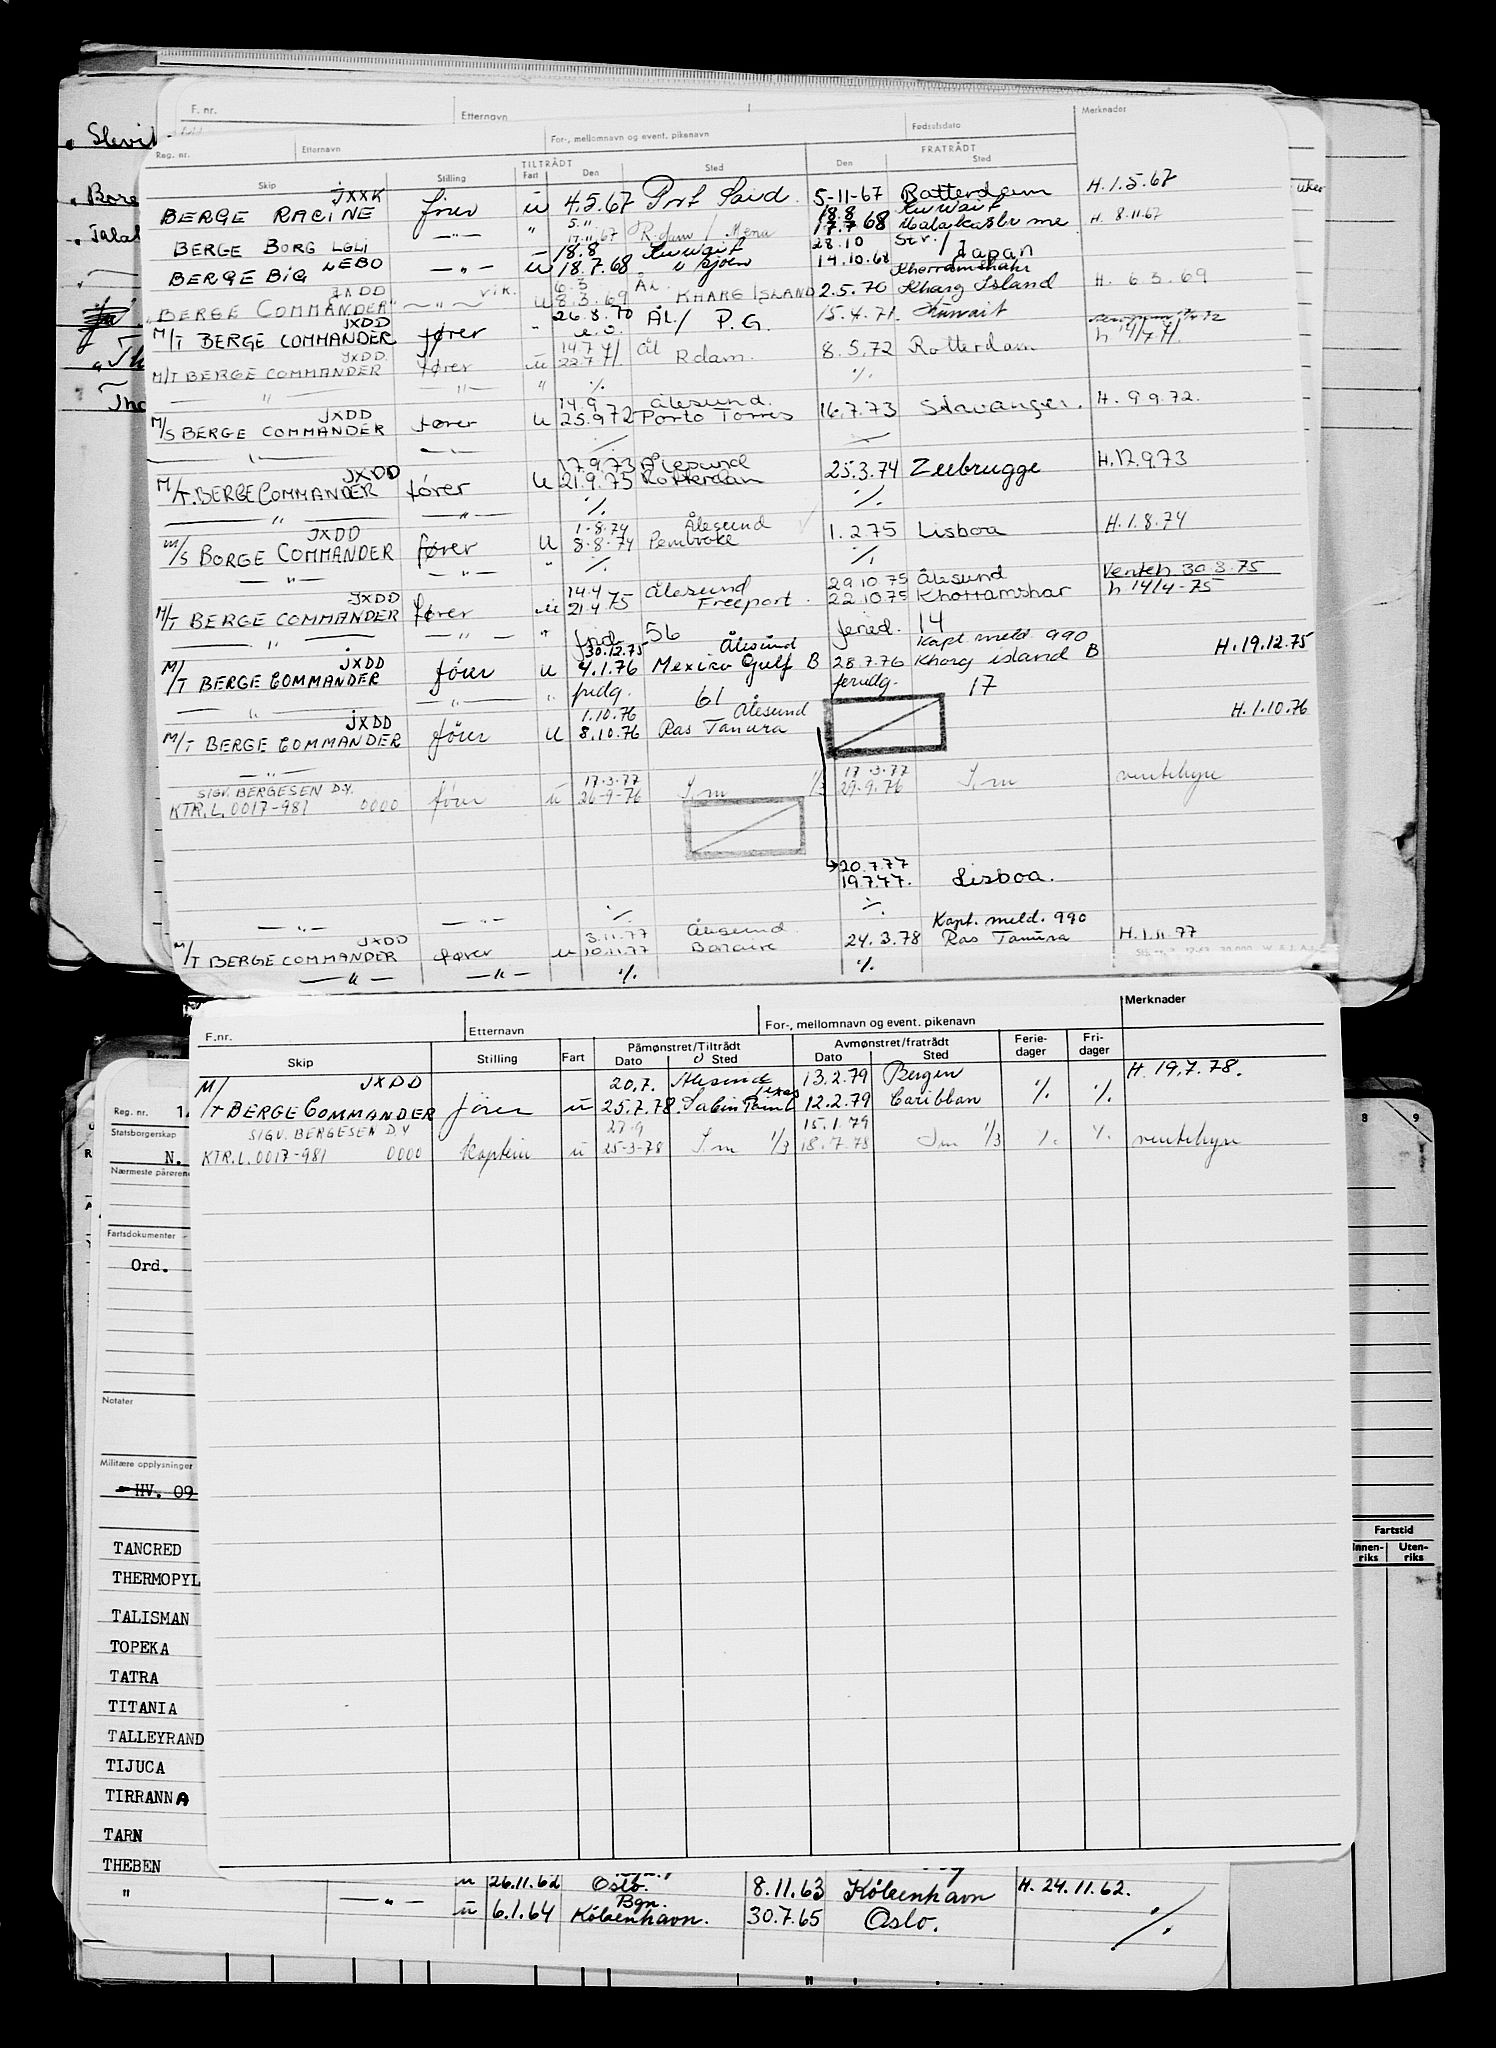 F. nr.
Etternavn
Merknader
For-, mellomnavn og event. pikenavn
Fødselsdato
Reg. nr.
Etternavn
TILTRÅDT
FRATRÅDT
Skip
Stilling
Fart
Den
Sted
Den
Sted
JXXK
BERGE RACINE fører u 4.5.67 Port Said 5-11-67 Rotterdam H. 1.5.67
5.11 18.8 Kuwait
BERGE BORG LGLI —"— " 17.11.67 R.dam / Mena 17.7 68 H. 8.11.67
18.8 Kuwait 28.10 Str. / Japan
BERGE BIG LEBO —"— u 18.7.68 14.10.68
JXDD 6.3 Ål. Khorramshahr
"BERGE COMMANDER" —"— vik. u 8.3.69 KHARG ISLAND 2.5.70 Kharg Island H. 6 3. 69
JXDD 26.8.70
M/T BERGE COMMANDER fører " Ål / P.G. 15.4.71. Kuwait
JXDD 14.7 71 Ål h 14/7 71.
M/T BERGE COMMANDER fører u 22.7 R.dam. 8.5.72 Rotterdam
" "— " ٪ ٪
JXDD 14.9 Ålesund.
M/S BERGE COMMANDER fører u 25.9 72 Porto Torres 16.7.73 Stavanger. H. 9 9. 72.
—"— —"— ٪ ٪
JXDD 17.9.73 Ålesund
M/T. BERGE COMMANDER fører u 21.9.75 Rotterdam 25.3.74 Zeebrugge H.17.9.73
—"— —"— ٪ ٪
JXDD 1.8.74 Ålesund
M/S BORGE COMMANDER fører u 8.8.74 Pembroke 1.2.75 Lisboa H.1.8.74
—"— —"— " ٪ ٪
Venteh 30.8.75
JXDD 14.4 Ålesund 29.10 75 Ålesund
M/T BERGE COMMANDER fører u 21.4 75 Freeport. 22.10 75 Khorramshar h 14/4-75
—"— —"— " frid. 56 feried. 14
JXDD 30.12.75 Ålesund Kapt meld 990 H.19.12.75
M/T BERGE COMMANDER fører u 4.1.76 Mexico Gulf B 28.7.76 Kharg island B
—"— —"— " fridg. 61 feriedg. 17
JXDD 1.10.76 Ålesund H.1.10.76
M/T BERGE COMMANDER fører u 8.10.76 Ras Tanura
—"—
SIGV. BERGESEN D.Y. 17.3.77 17.3.77
KTR.L.0017-981 0000 fører u 26-9-76 S.m 1/3 29.9.76 S.m ventehyre
20.7.77
19.7.77. Lisboa.
—"— —"— ٪ ٪
JXDD 3.11.77 Ålesund Kapt. meld. 990
M/T BERGE COMMANDER fører u 10.11.77 Bonaire 24.3.78 Ras Tanura H.1.11.77
—"— —"— ٪ ٪
F.nr.
Etternavn
For-, mellomnavn og event. pikenavn
Merknader
Skip
Stilling
Fart
Påmønstret/Tiltrådt
Dato
Sted
Avmønstret/fratrådt
Dato
Sted
Ferie-
dager
Fri-
dager
JXDD 20.7. Ålesund 13.2.79 Bergen H. 19.7.78.
M/T BERGE COMMANDER fører u 25.7.78 12.2.79 Caribbean ٪ ٪
SIGV. BERGESEN D.Y 27.9 15.1.79
KTR.L.0017-981 0000 Kaptein u 25-3-78 S.m 1/3 18.7.78 S.m 1/3 ٪ ٪ ventehyre
Reg. nr.
Statsborgerskap
N.
Nærmeste pårørende
Fartsdokumenter
Ord.
Notater
Militære opplysninger
HV. 09
TANCRED
THERMOPYL
TALISMAN
TOPEKA
TATRA
TITANIA
TALLEYRAND
TIJUCA
TIRRANNA
TARN
THEBEN
" u 26.11.62 Oslo. 8.11.63 København H. 24.11.62.
—"— Bgn.
u 6.1.64 København. 30.7.65 Oslo. ٪
8 9
Fartstid
Innen-
riks
Uten-
riks